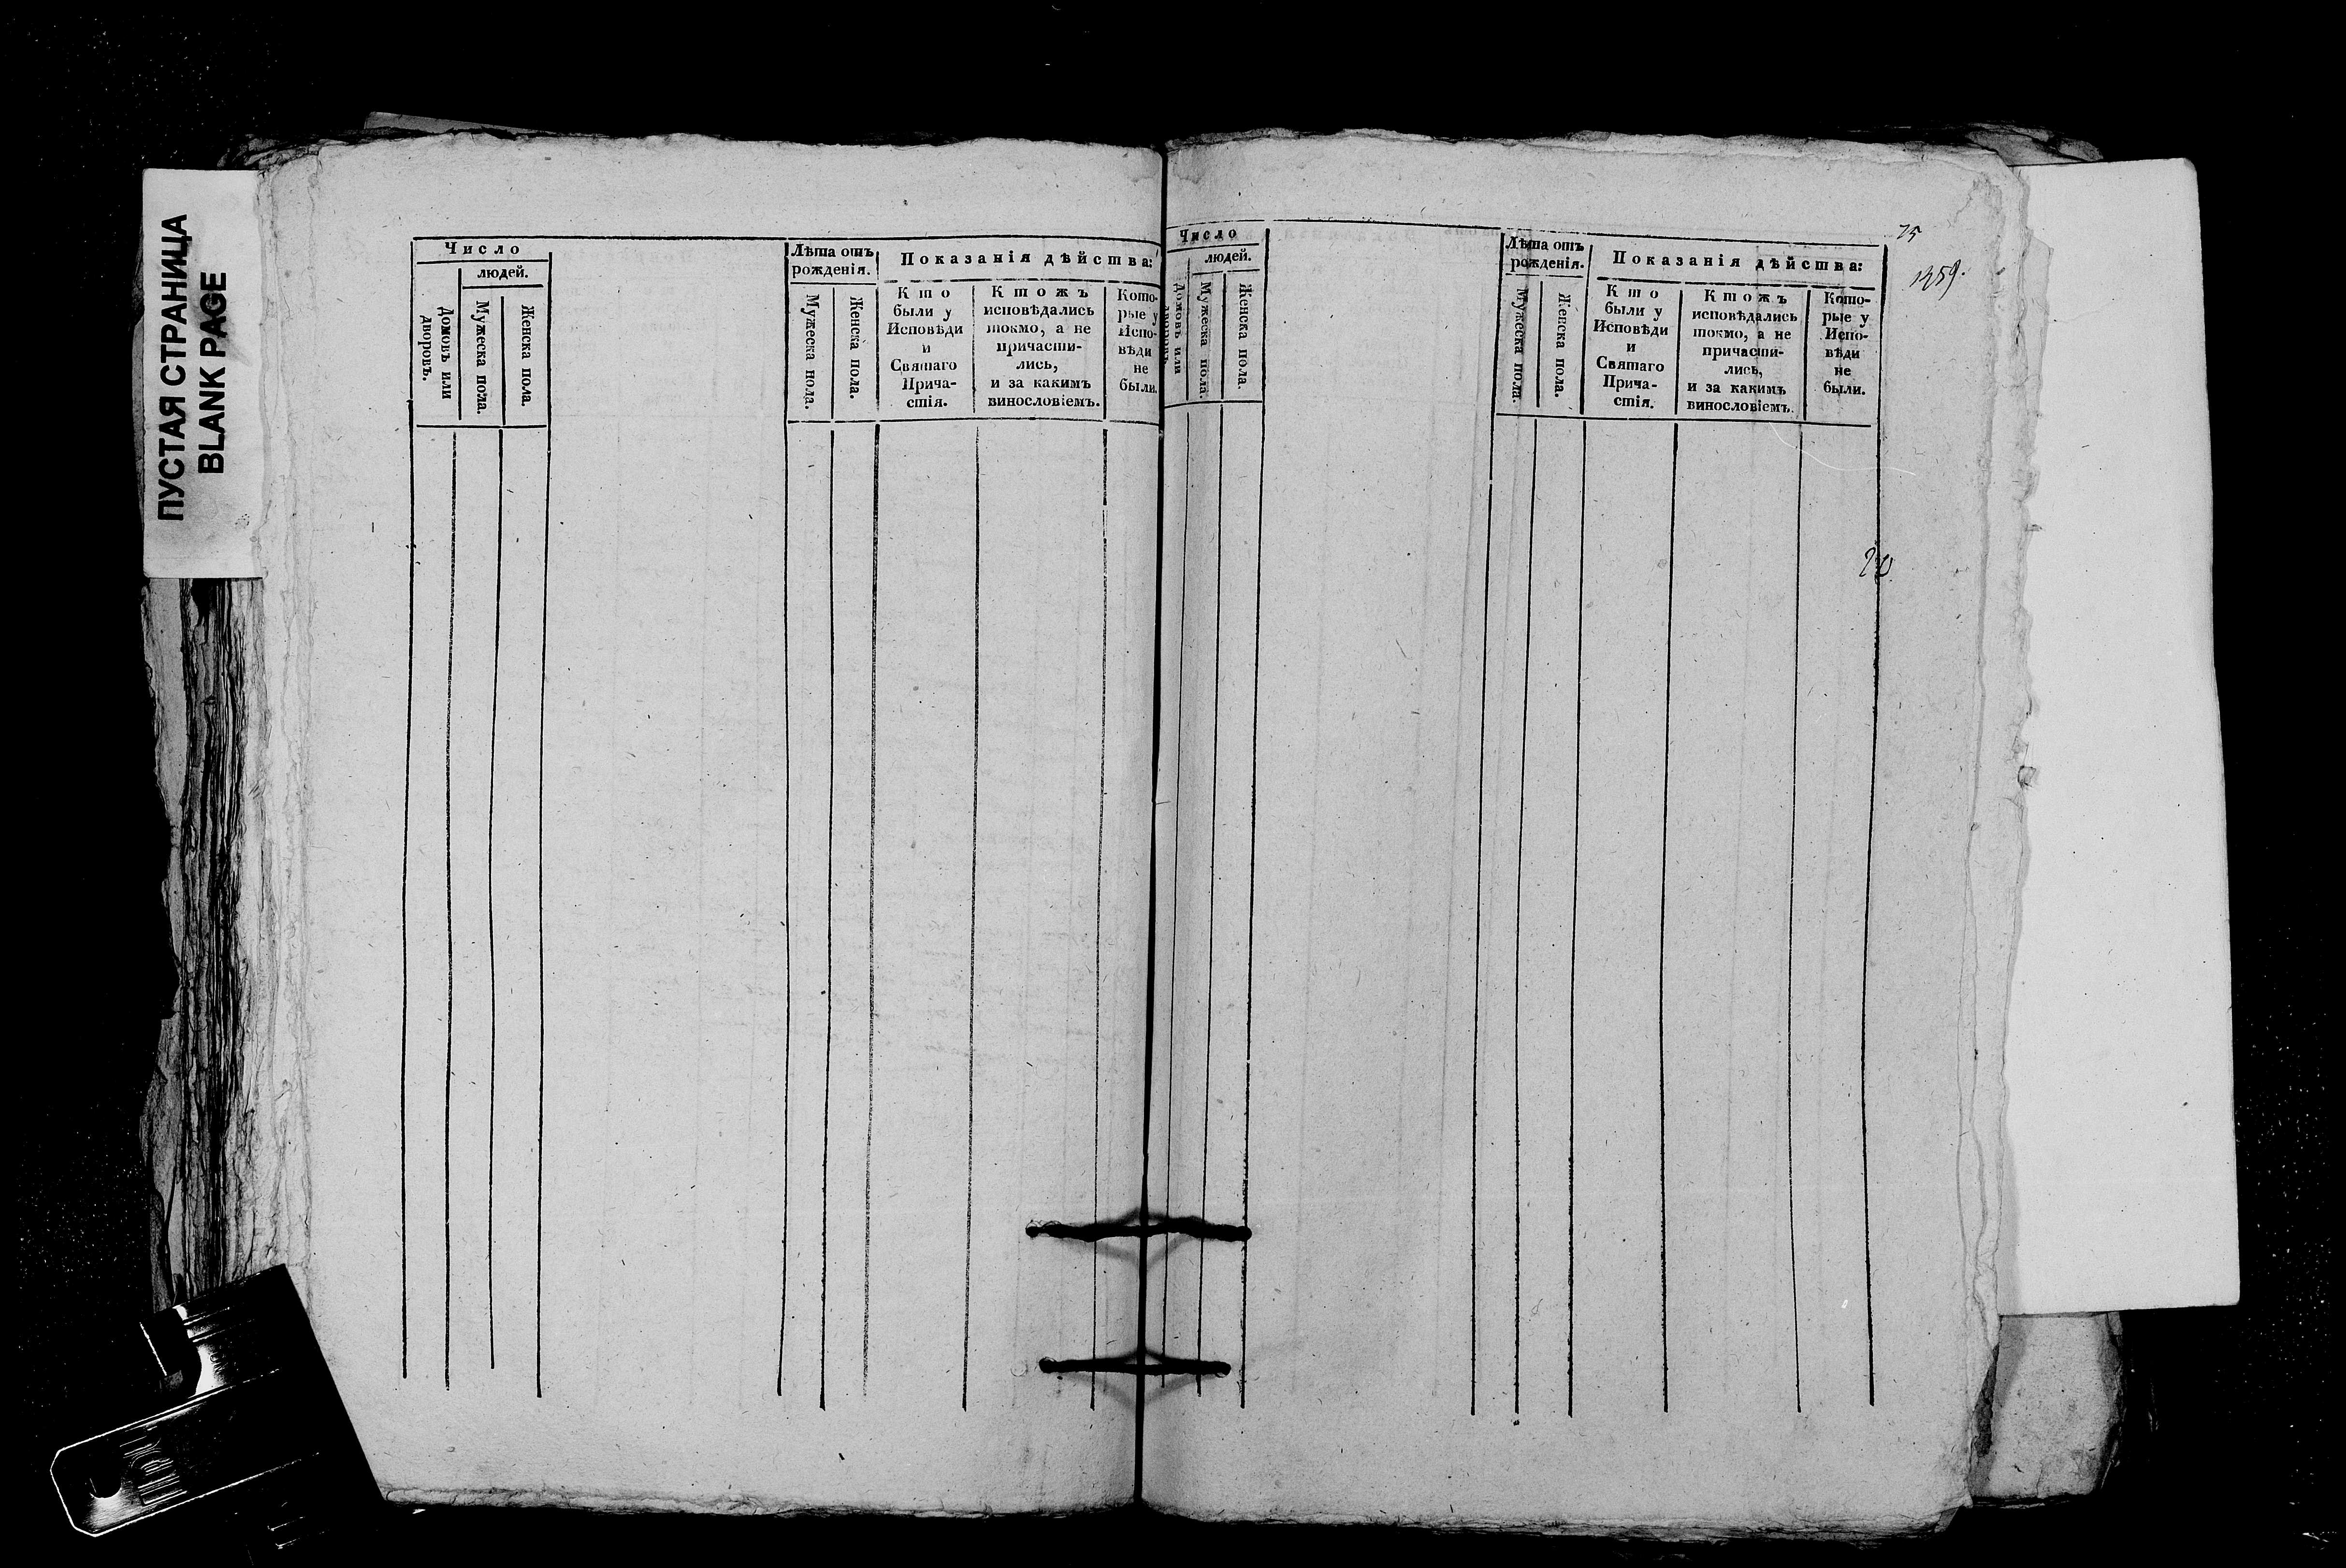 ПУСТАЯ СТРАНИЦА
BLANK PAGE
Число
людей.
Домовъ или
дворовъ.
Мужеска пола.
Женска пола.
Лѣта отъ
рожденія.
Мужеска пола.
Женска пола.
Показанія дѣйства:
Кто
были у
Исповѣди
и
Святаго
Прича-
стія.
Ктожъ
исповѣдались
токмо, а не
причасти-
лись,
и за какимъ
винословіемъ.
Кото-
рые у
Испо-
вѣди
не
были.
Число
людей.
Домовъ или
дворовъ
Мужеска пола.
Женска пола.
Лѣта отъ
рожденія.
Мужеска пола.
Женска пола.
Показанія дѣйства:
Кто
были у
Исповѣди
и
Святаго
Прича-
стія.
Ктожъ
исповѣдались
токмо, а не
причасти-
лись,
и за какимъ
винословіемъ.
Кото-
рые у
Испо-
вѣди
не
были.
75